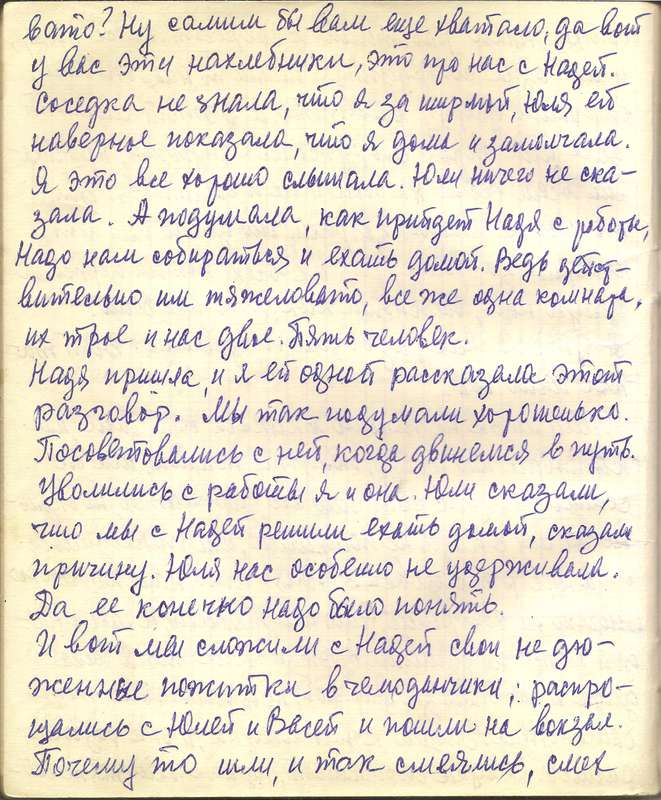 вато? Ну самим бы вам еще хватало, да вот
у вас эти нахлебники, это про нас с Надей.
Соседка не знала, что я за ширмой, Юля ей
наверное показала, что я дома и замолчала.
Я это все хорошо слышала. Юля ничего не ска-
зала. А подумала, как прийдет Надя с работы,
Надо нам собираться и ехать домой. Ведь дейст-
вительно им тяжеловато, все же одна комната,
их трое и нас двое. Пять человек.
Надя пришла, и я ей одной рассказала этот
разговор. Мы так подумали хорошенько.
Посоветовались с ней, когда двинемся в путь.
Уволились с работы я и она. Юли сказали,
что мы с Надей решили ехать домой, сказали
причину. Юля нас особенно не удерживала.
Да ее конечно надо было понять.
И вот мы сложили с Надей свои не дю-
женные пожитки в чемоданчики, распро-
щались с Юлей и Васей и пошли на вокзал.
Почему то шли, и так смеялись, смех